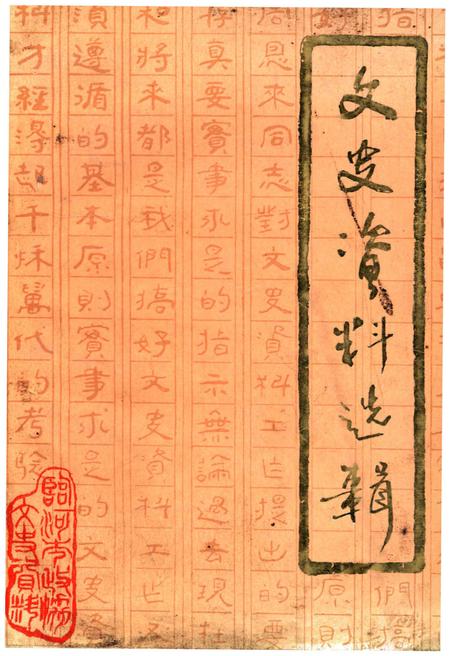 文史資料选輯
指
們搞
原則
周恩來同志對文史資料工作提出的要
存真要實事求是的指示無論過去現在
和將來都是我們搞好文史資料工作必
須遵循的基本原則實事求是的文史資
料才經得起千秋萬代的考驗
臨河市政協
文史資料